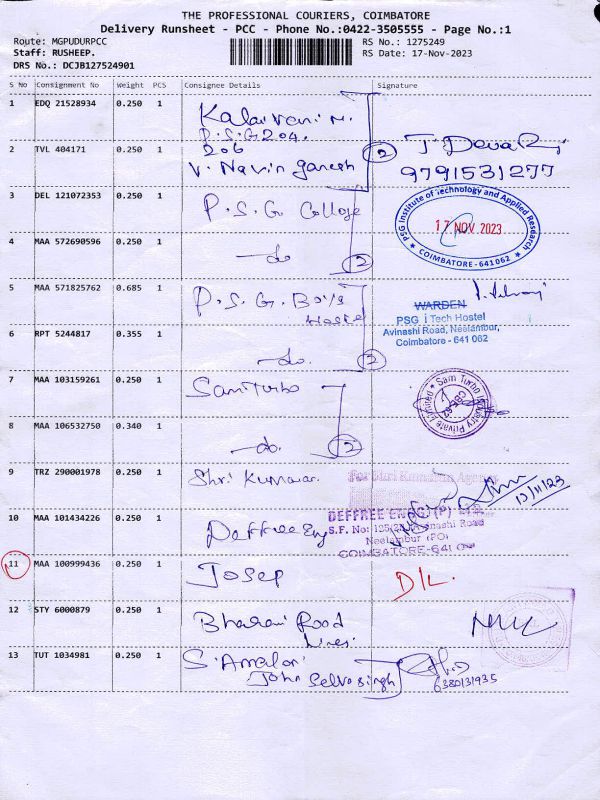 THE PROFESSIONAL COURIERS, COIMBATORE
Delivery Runsheet - PCC - Phone No.:0422-3505555 - Page No.:1
Route: MGPUDURPCC
Staff: RUSHEEP.
DRS No.: DCJB127524901
RS No.: 1275249
RS Date: 17-Nov-2023
S No Consignment No Weight PCS Consignee Details Signature
1 EDQ 21528934 0.250 1 Kalaivani M.
P.S.G 204,
2 TVL 404171 0.250 1 206
V. Navin ganesh
2
T. Devaraj
9791531277
3 DEL 121072353 0.250 1 P.S.G. College
PSG Institute of Technology and Applied Research
17 NOV 2023
* COIMBATORE - 641 062 *
4 MAA 572690596 0.250 1 -do 2
5 MAA 571825762 0.685 1 P.S.G. Boys
Hostel
WARDEN
PSG i Tech Hostel
Avinashi Road, Neelambur,
Coimbatore - 641 062
6 RPT 5244817 0.355 1 -do. 2
7 MAA 103159261 0.250 1 Sam Turbo
Sam Turbo Industry Private Limited
8 MAA 106532750 0.340 1 -do. 2
9 TRZ 290001978 0.250 1 Shri Kumaran
For Shri Kumaran Agency
13/11/23
10 MAA 101434226 0.250 1 Deffree Eng
DEFFREE ENGG (P) LTD.
S.F. No: Avinashi Road
Neelambur (PO)
COIMBATORE-641 0
11 MAA 100999436 0.250 1 Josep D/L.
12 STY 6000879 0.250 1 Bharani Road
Lines
13 TUT 1034981 0.250 1 S. Amalan
John Selvasingh
6380131935